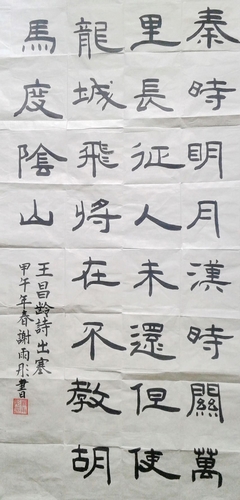 秦時明月漢時關萬
里長征人未還但使
龍城飛將在不教胡
馬度陰山
王昌齡詩出塞
甲午年春謝雨彤書